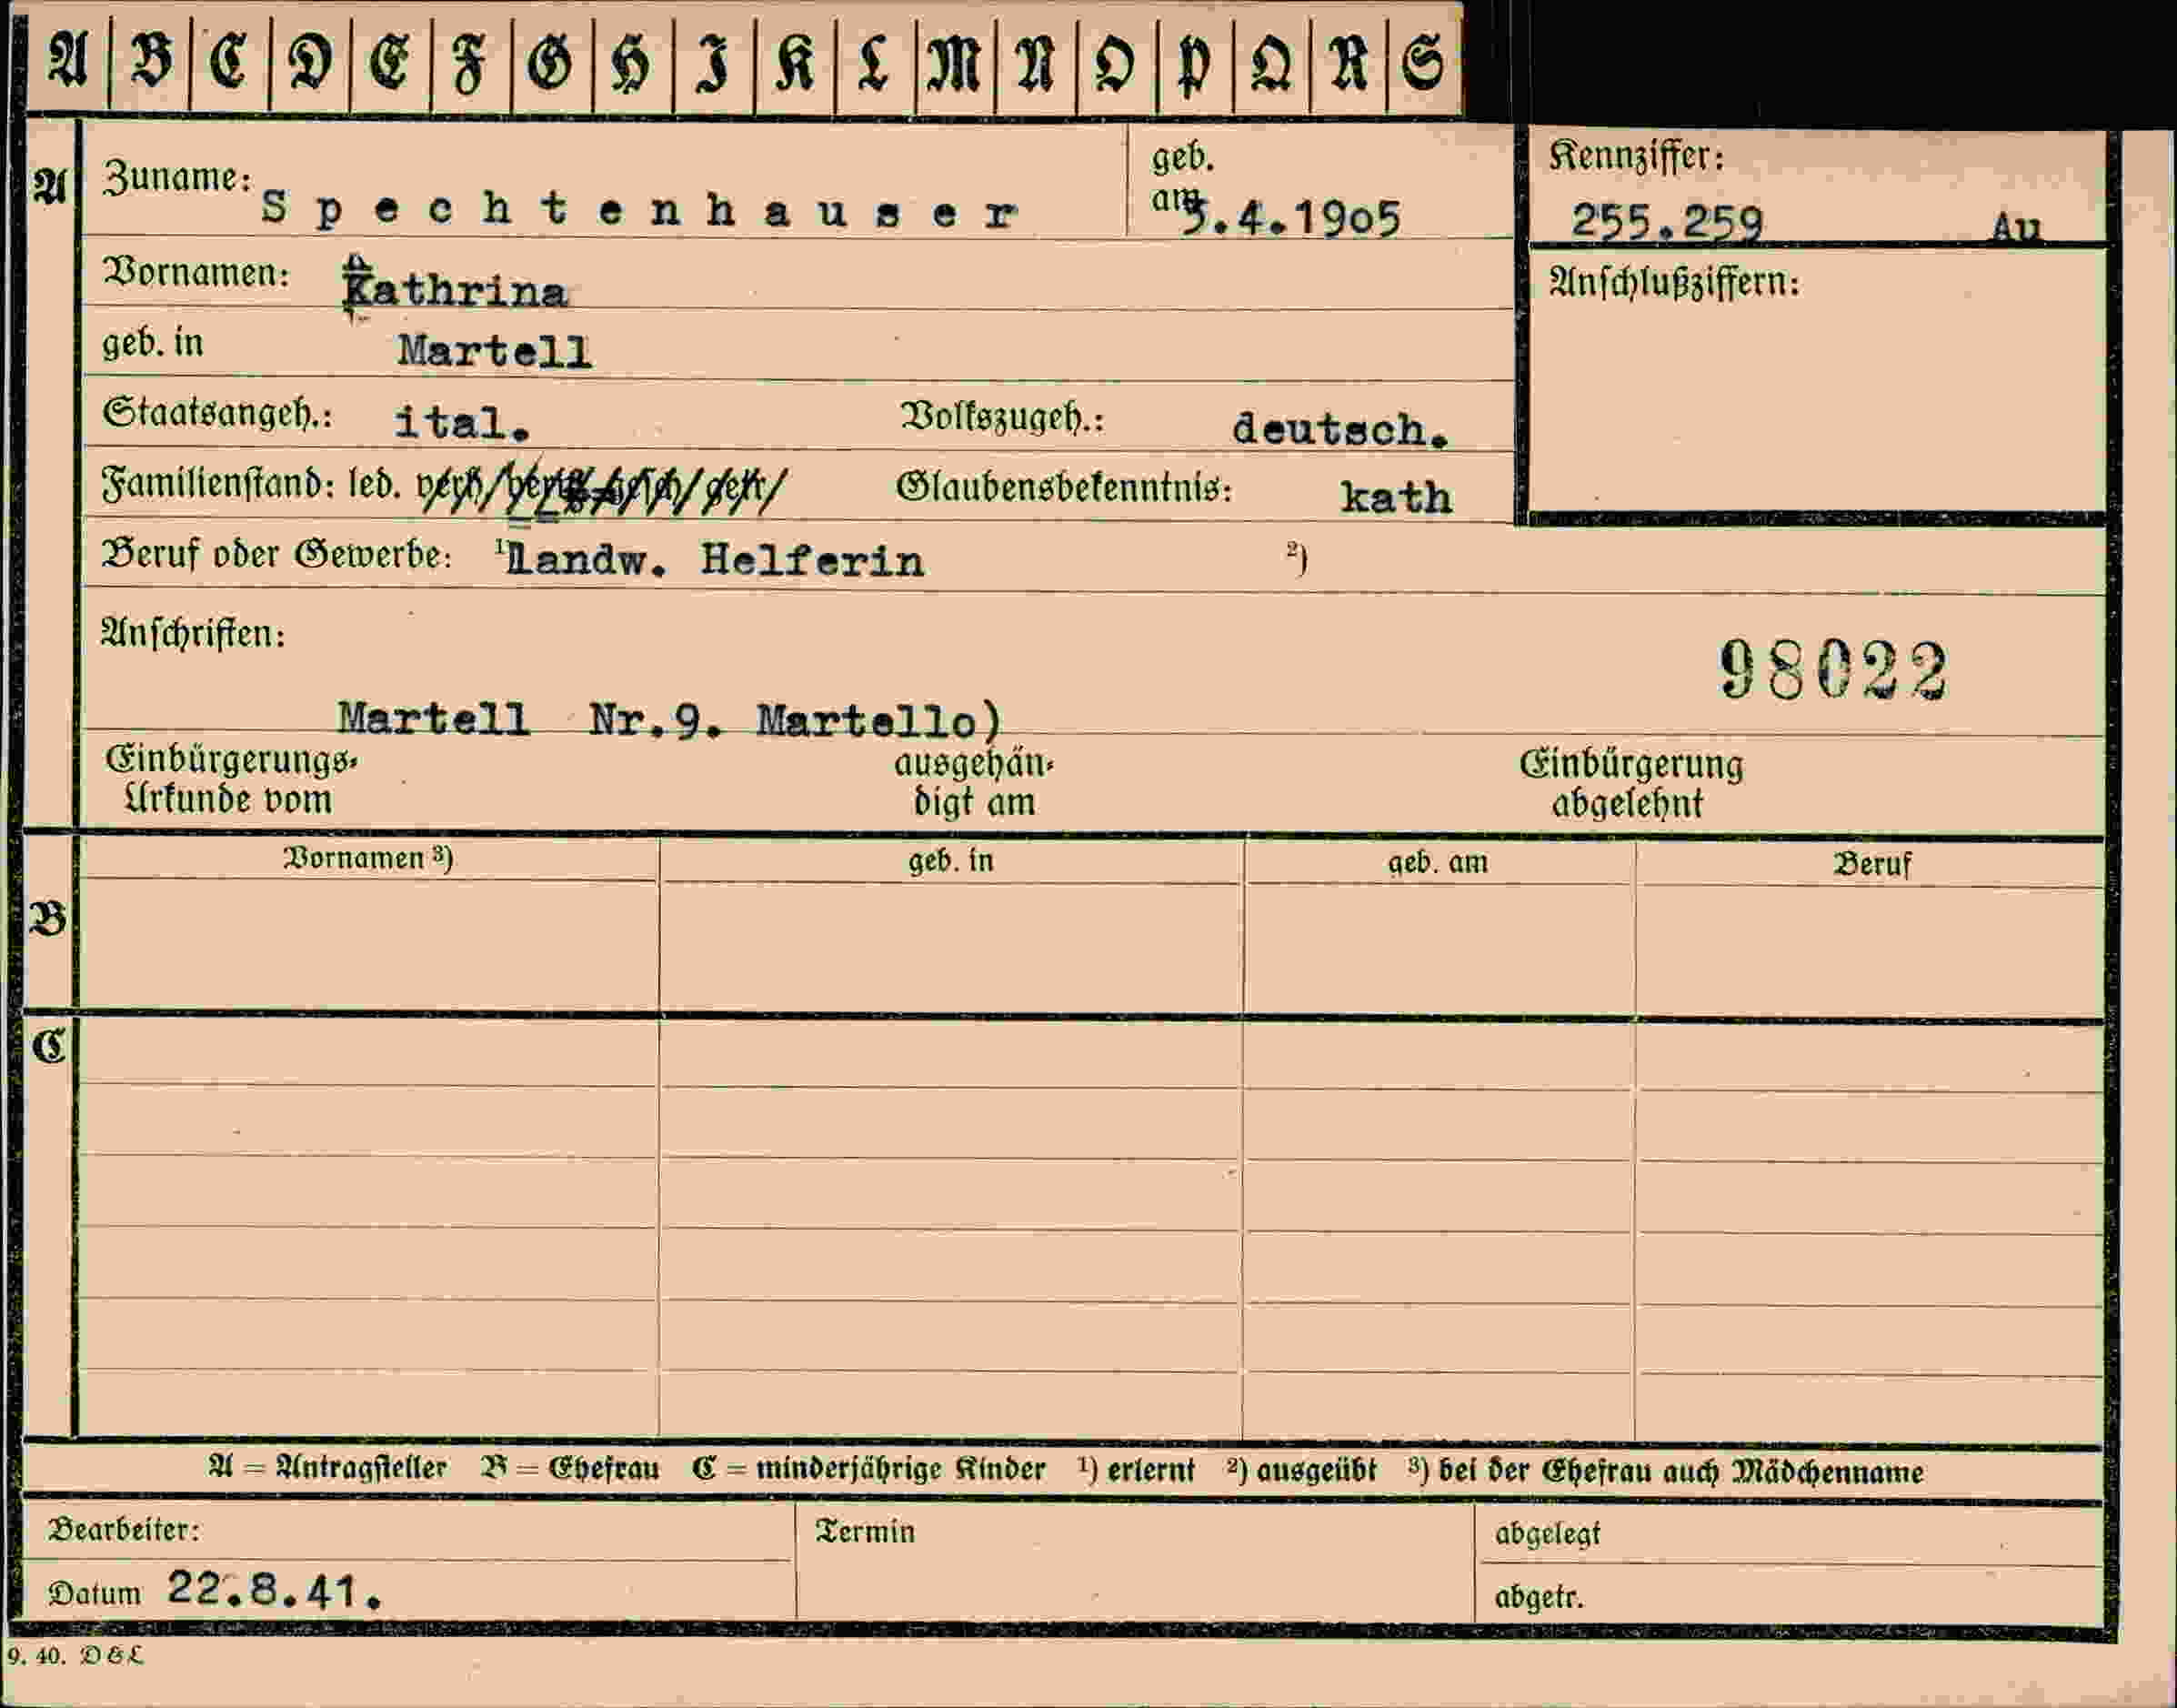 A B C D E F G H I K L M N O P Q R S
A
Zuname: Spechtenhauser
geb. am .4.1905
Kennziffer: 255.259 Au
Vornamen: Kathrina
Anschlußziffern:
geb. in Martell
Staatsangeh.: ital. Volkszugeh.: deutsch.
Familienstand: led. Glaubensbekenntnis: kath
Beruf oder Gewerbe: 1) Landw. Helferin 2)
Anschriften:
98022
Martell Nr.9. Martello)
Einbürgerungs- ausgehän- Einbürgerung
Urkunde vom digt am abgelehnt
Vornamen 3) geb. in geb. am Beruf
B
C
A = Antragsteller B = Ehefrau C = minderjährige Kinder 1) erlernt 2) ausgeübt 3) bei der Ehefrau auch Mädchenname
Bearbeiter: Termin abgelegt
Datum 22.8.41. abgetr.
9. 40. D & L